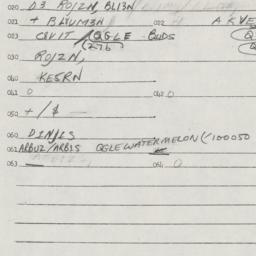 020 D3 ROIZN, BLI3N
021 + BLIUM3N 022 AKVE
023 C8VIT / QGLE BUDS
276
030 ROIZN,
040 KESRN
041 0 042 0
050 + / $ —
060 DINJLS
061 ARBUZ/ARBLS QGLEWATERMELON (<100050
063 — 064 0